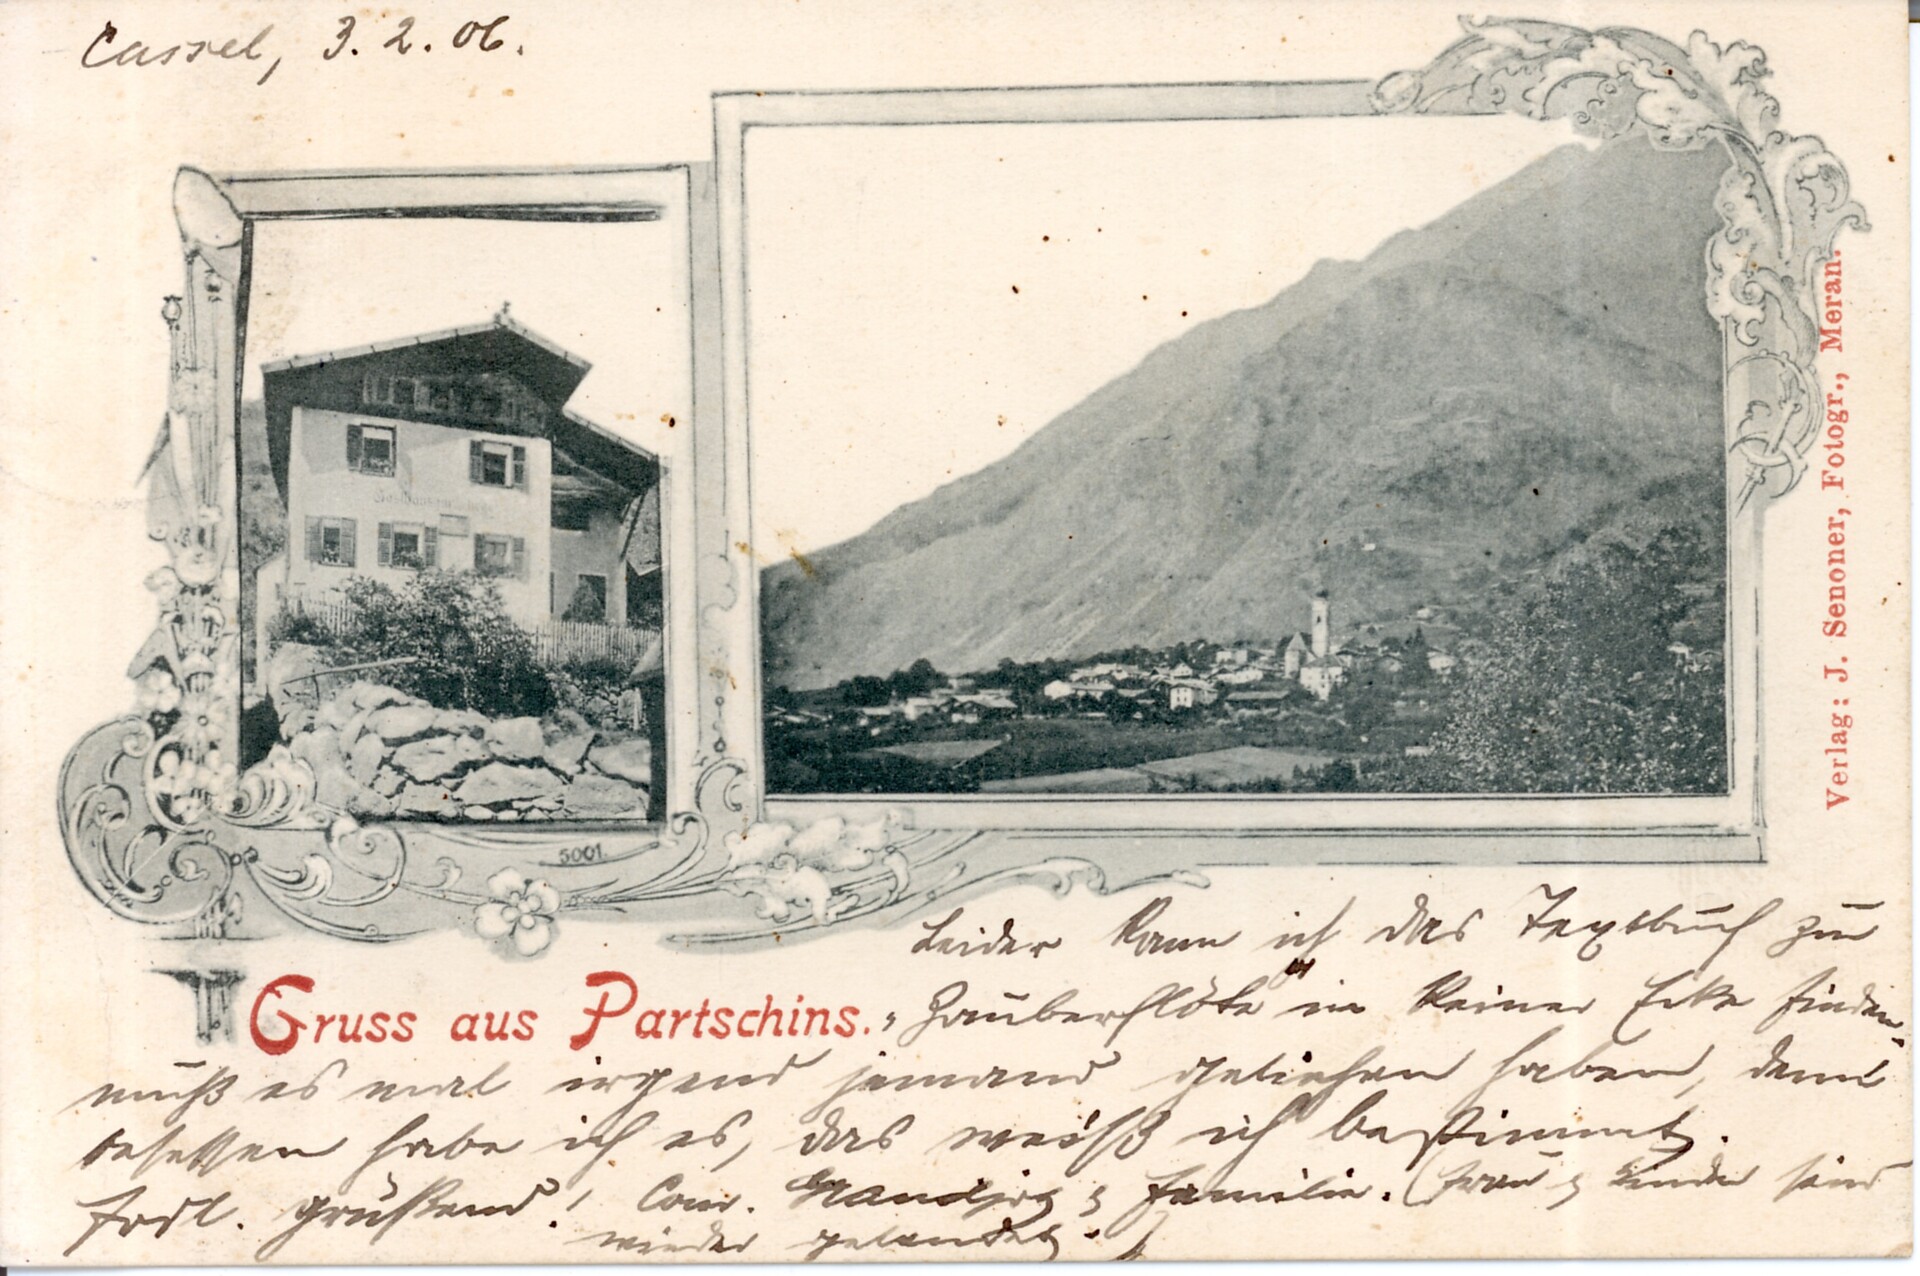 Cassel, 3. 2. 06.
Gasthaus
5001.
Verlag: J. Senoner, Fotogr., Meran.
Gruss aus Partschins.
Leider kann ich das Textbuch zu
Zauberflöte in keiner Ecke finden,
muß es mal irgend jemand geliehen haben, denn
besessen habe ich es, das weiß ich bestimmt.
Frdl. grüßend! Conr. & Familie. (Frau & Kinder sind
wieder gelandet.)